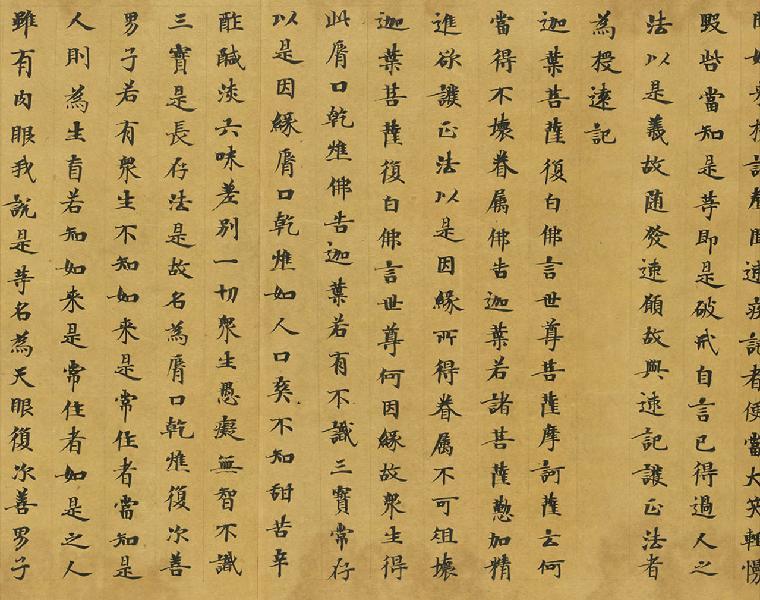 聞如來授記聲聞速疾記者便當大笑輕慢
毀呰當知是等即是破戒自言已得過人之
法以是義故随發速願故與速記護正法者
為授遠記
迦葉菩薩復白佛言世尊菩薩摩訶薩云何
當得不壞眷属佛告迦葉若諸菩薩懃加精
進欲護正法以是因緣所得眷属不可俎壞
迦葉菩薩復白佛言世尊何因緣故衆生得
此脣口乾燋佛告迦葉若有不識三寶常存
以是因緣脣口乾燋如人口爽不知甜苦辛
酢醎淡六味差別一切衆生愚癡無智不識
三寶是長存法是故名為脣口乾燋復次善
男子若有衆生不知如来是常住者當知是
人則為生盲若知如来是常住者如是之人
雖有肉眼我說是等名為天眼復次善男子